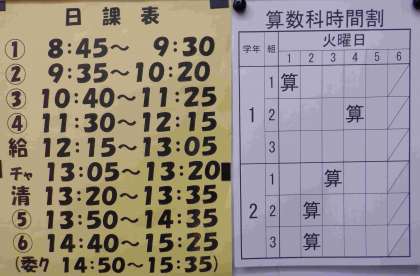 日課表
① 8:45～ 9:30
② 9:35～10:20
③ 10:40～11:25
④ 11:30～12:15
給 12:15～13:05
チャ 13:05～13:20
清 13:20～13:35
⑤ 13:50～14:35
⑥ 14:40～15:25
(委ク 14:50～15:35)
算数科時間割
学年 組 火曜日
1 2 3 4 5 6
1 1 算
2 算
3
2 1 算
2 算
3 算